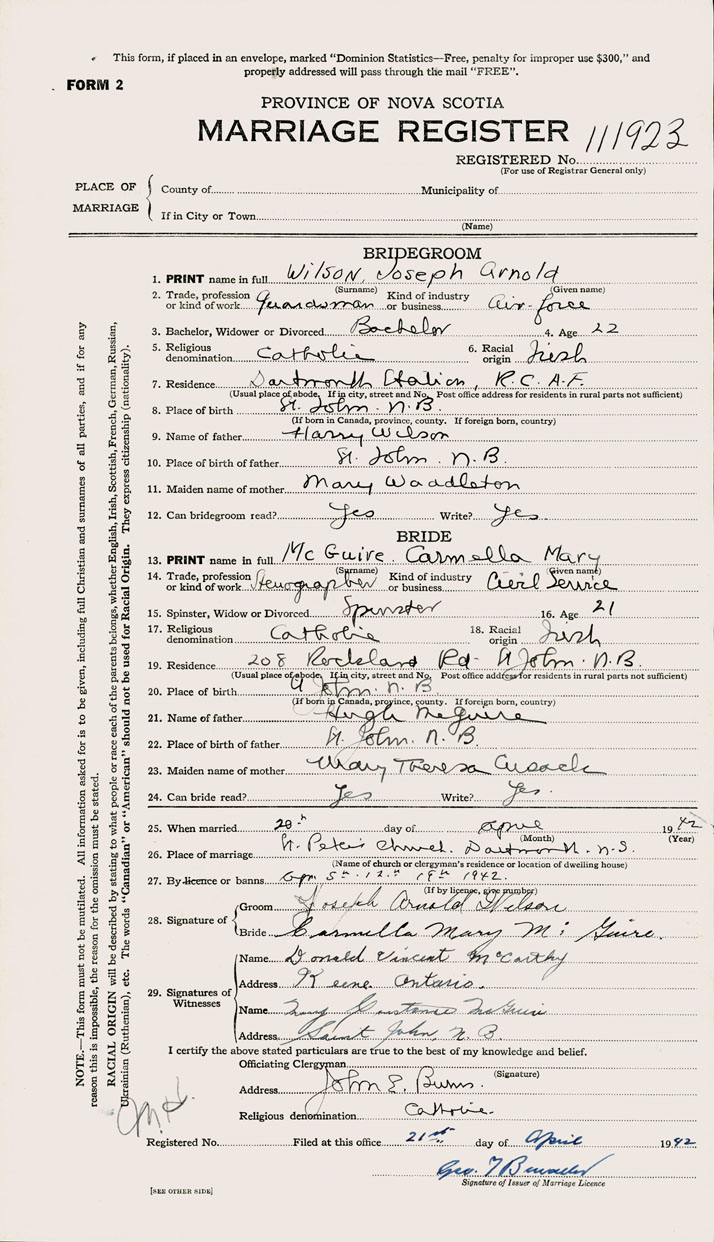 This form, if placed in an envelope, marked "Dominion Statistics—Free, penalty for improper use $300," and
properly addressed will pass through the mail "FREE".
FORM 2
PROVINCE OF NOVA SCOTIA
MARRIAGE REGISTER 111923
REGISTERED No.
(For use of Registrar General only)
PLACE OF MARRIAGE
County of Municipality of
If in City or Town
(Name)
BRIDEGROOM
1. PRINT name in full Wilson, Joseph Arnold
(Surname) (Given name)
2. Trade, profession or kind of work Guardsman Kind of industry or business Air-force
3. Bachelor, Widower or Divorced Bachelor 4. Age 22
5. Religious denomination Catholic 6. Racial origin Irish
7. Residence Dartmouth Station, R.C.A.F.
(Usual place of abode. If in city, street and No. Post office address for residents in rural parts not sufficient)
8. Place of birth St. John. N.B.
(If born in Canada, province, county. If foreign born, country)
9. Name of father Harry Wilson
10. Place of birth of father St. John. N.B.
11. Maiden name of mother Mary Waddleton
12. Can bridegroom read? Yes Write? Yes
BRIDE
13. PRINT name in full McGuire. Carmella Mary
(Surname) (Given name)
14. Trade, profession or kind of work Stenographer Kind of industry or business Civil Service
15. Spinster, Widow or Divorced Spinster 16. Age 21
17. Religious denomination Catholic 18. Racial origin Irish
19. Residence 208 Rockland Rd- St John. N.B.
(Usual place of abode. If in city, street and No. Post office address for residents in rural parts not sufficient)
20. Place of birth St John. N.B.
(If born in Canada, province, county. If foreign born, country)
21. Name of father Hugh McGuire
22. Place of birth of father St. John. N.B.
23. Maiden name of mother Mary Theresa Cusack
24. Can bride read? Yes Write? Yes.
25. When married 20th day of April 1942
(Month) (Year)
26. Place of marriage St. Peter's Church. Dartmouth. N.S.
(Name of church or clergyman's residence or location of dwelling house)
27. By licence or banns Apr. 5th. 12th 19th 1942.
(If by license, give number)
28. Signature of
Groom Joseph Arnold Wilson
Bride Carmella Mary McGuire.
29. Signatures of Witnesses
Name Donald Vincent McCarthy
Address Keene Ontario.
Name Mary Constance McGuire
Address Saint John, N.B.
I certify the above stated particulars are true to the best of my knowledge and belief.
Officiating Clergyman
(Signature)
John E. Burns.
Address
Religious denomination Catholic.
Registered No. Filed at this office 21st day of April 1942
Geo. T
Signature of Issuer of Marriage Licence
[SEE OTHER SIDE]
NOTE.—This form must not be mutilated. All information asked for is to be given, including full Christian and surnames of all parties, and if for any
reason this is impossible, the reason for the omission must be stated.
RACIAL ORIGIN will be described by stating to what people or race each of the parents belongs, whether English, Irish, Scottish, French, German, Russian,
Ukrainian (Ruthenian), etc. The words "Canadian" or "American" should not be used for Racial Origin. They express citizenship (nationality).